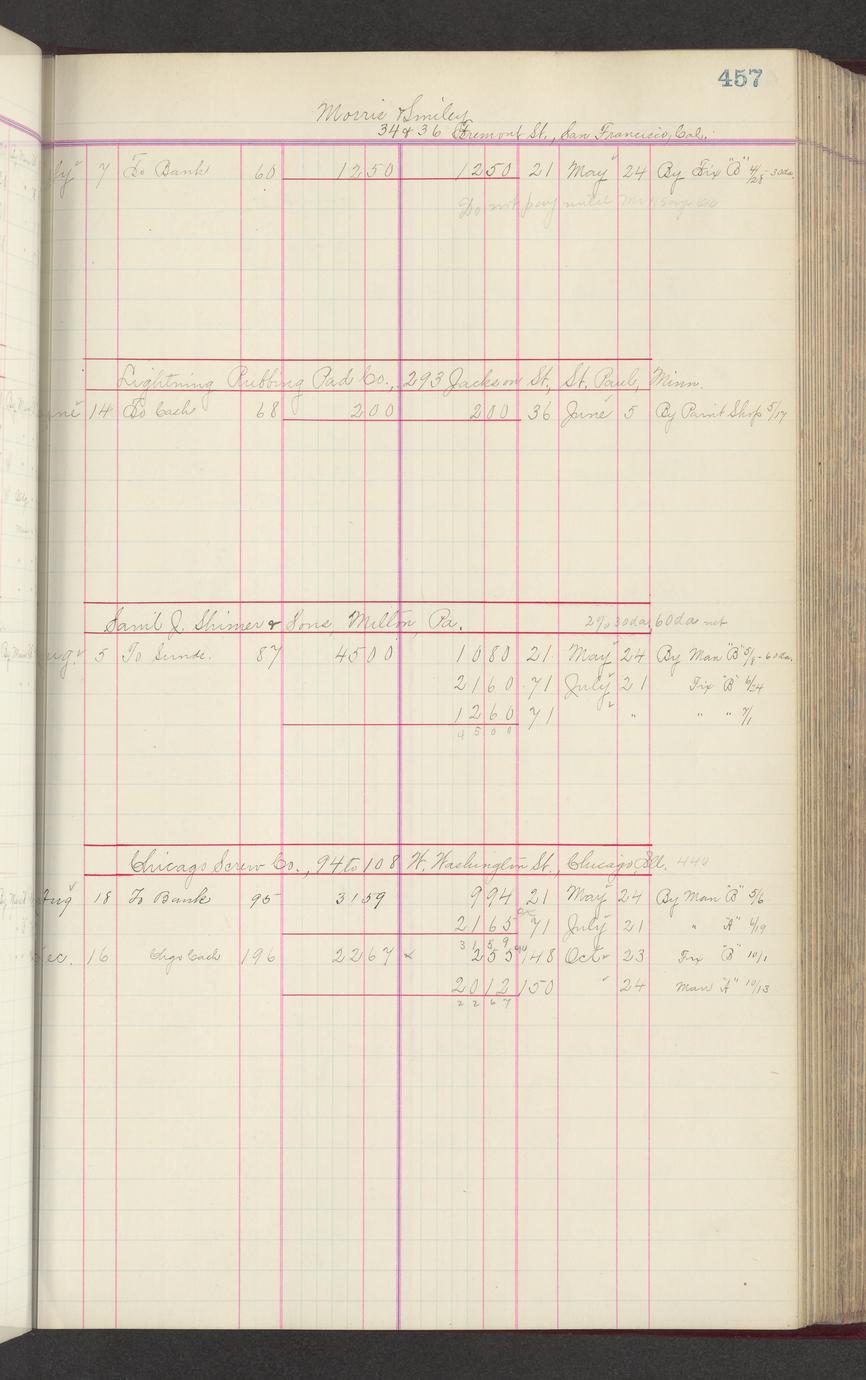 457
Morris & Smiley
34 & 36 Fremont St., San Francisco, Cal.
7 To Bank 60 1250 1250 21 May 24 By Fix "B" 4/28 - 30 da.
Do not pay until
Lightning Rubbing Pad Co., 293 Jackson St., St. Paul, Minn.
14 To Cash 68 200 200 36 June 5 By Paint Shop 5/17
Saml J. Shimer & Sons, Milton, Pa. 2% 30 da, 60 da net
5 To Sunds. 87 4500 1080 21 May 24 By Man "B" 5/8 - 60 da.
2160 71 July 21 Fix "B" 6/24
1260 71 " " " " 7/1
4500
Chicago Screw Co., 94 to 108 W. Washington St., Chicago, Ill. 440
Aug 18 To Bank 95 3159 994 21 May 24 By Man "B" 5/6
2165 71 July 21 " "A" 6/19
3159
ec. 16 Chgo Cash 196 2267 x 255 148 Oct 23 Fix "B" 10/1
2012 150 " 24 Man "A" 10/13
2267